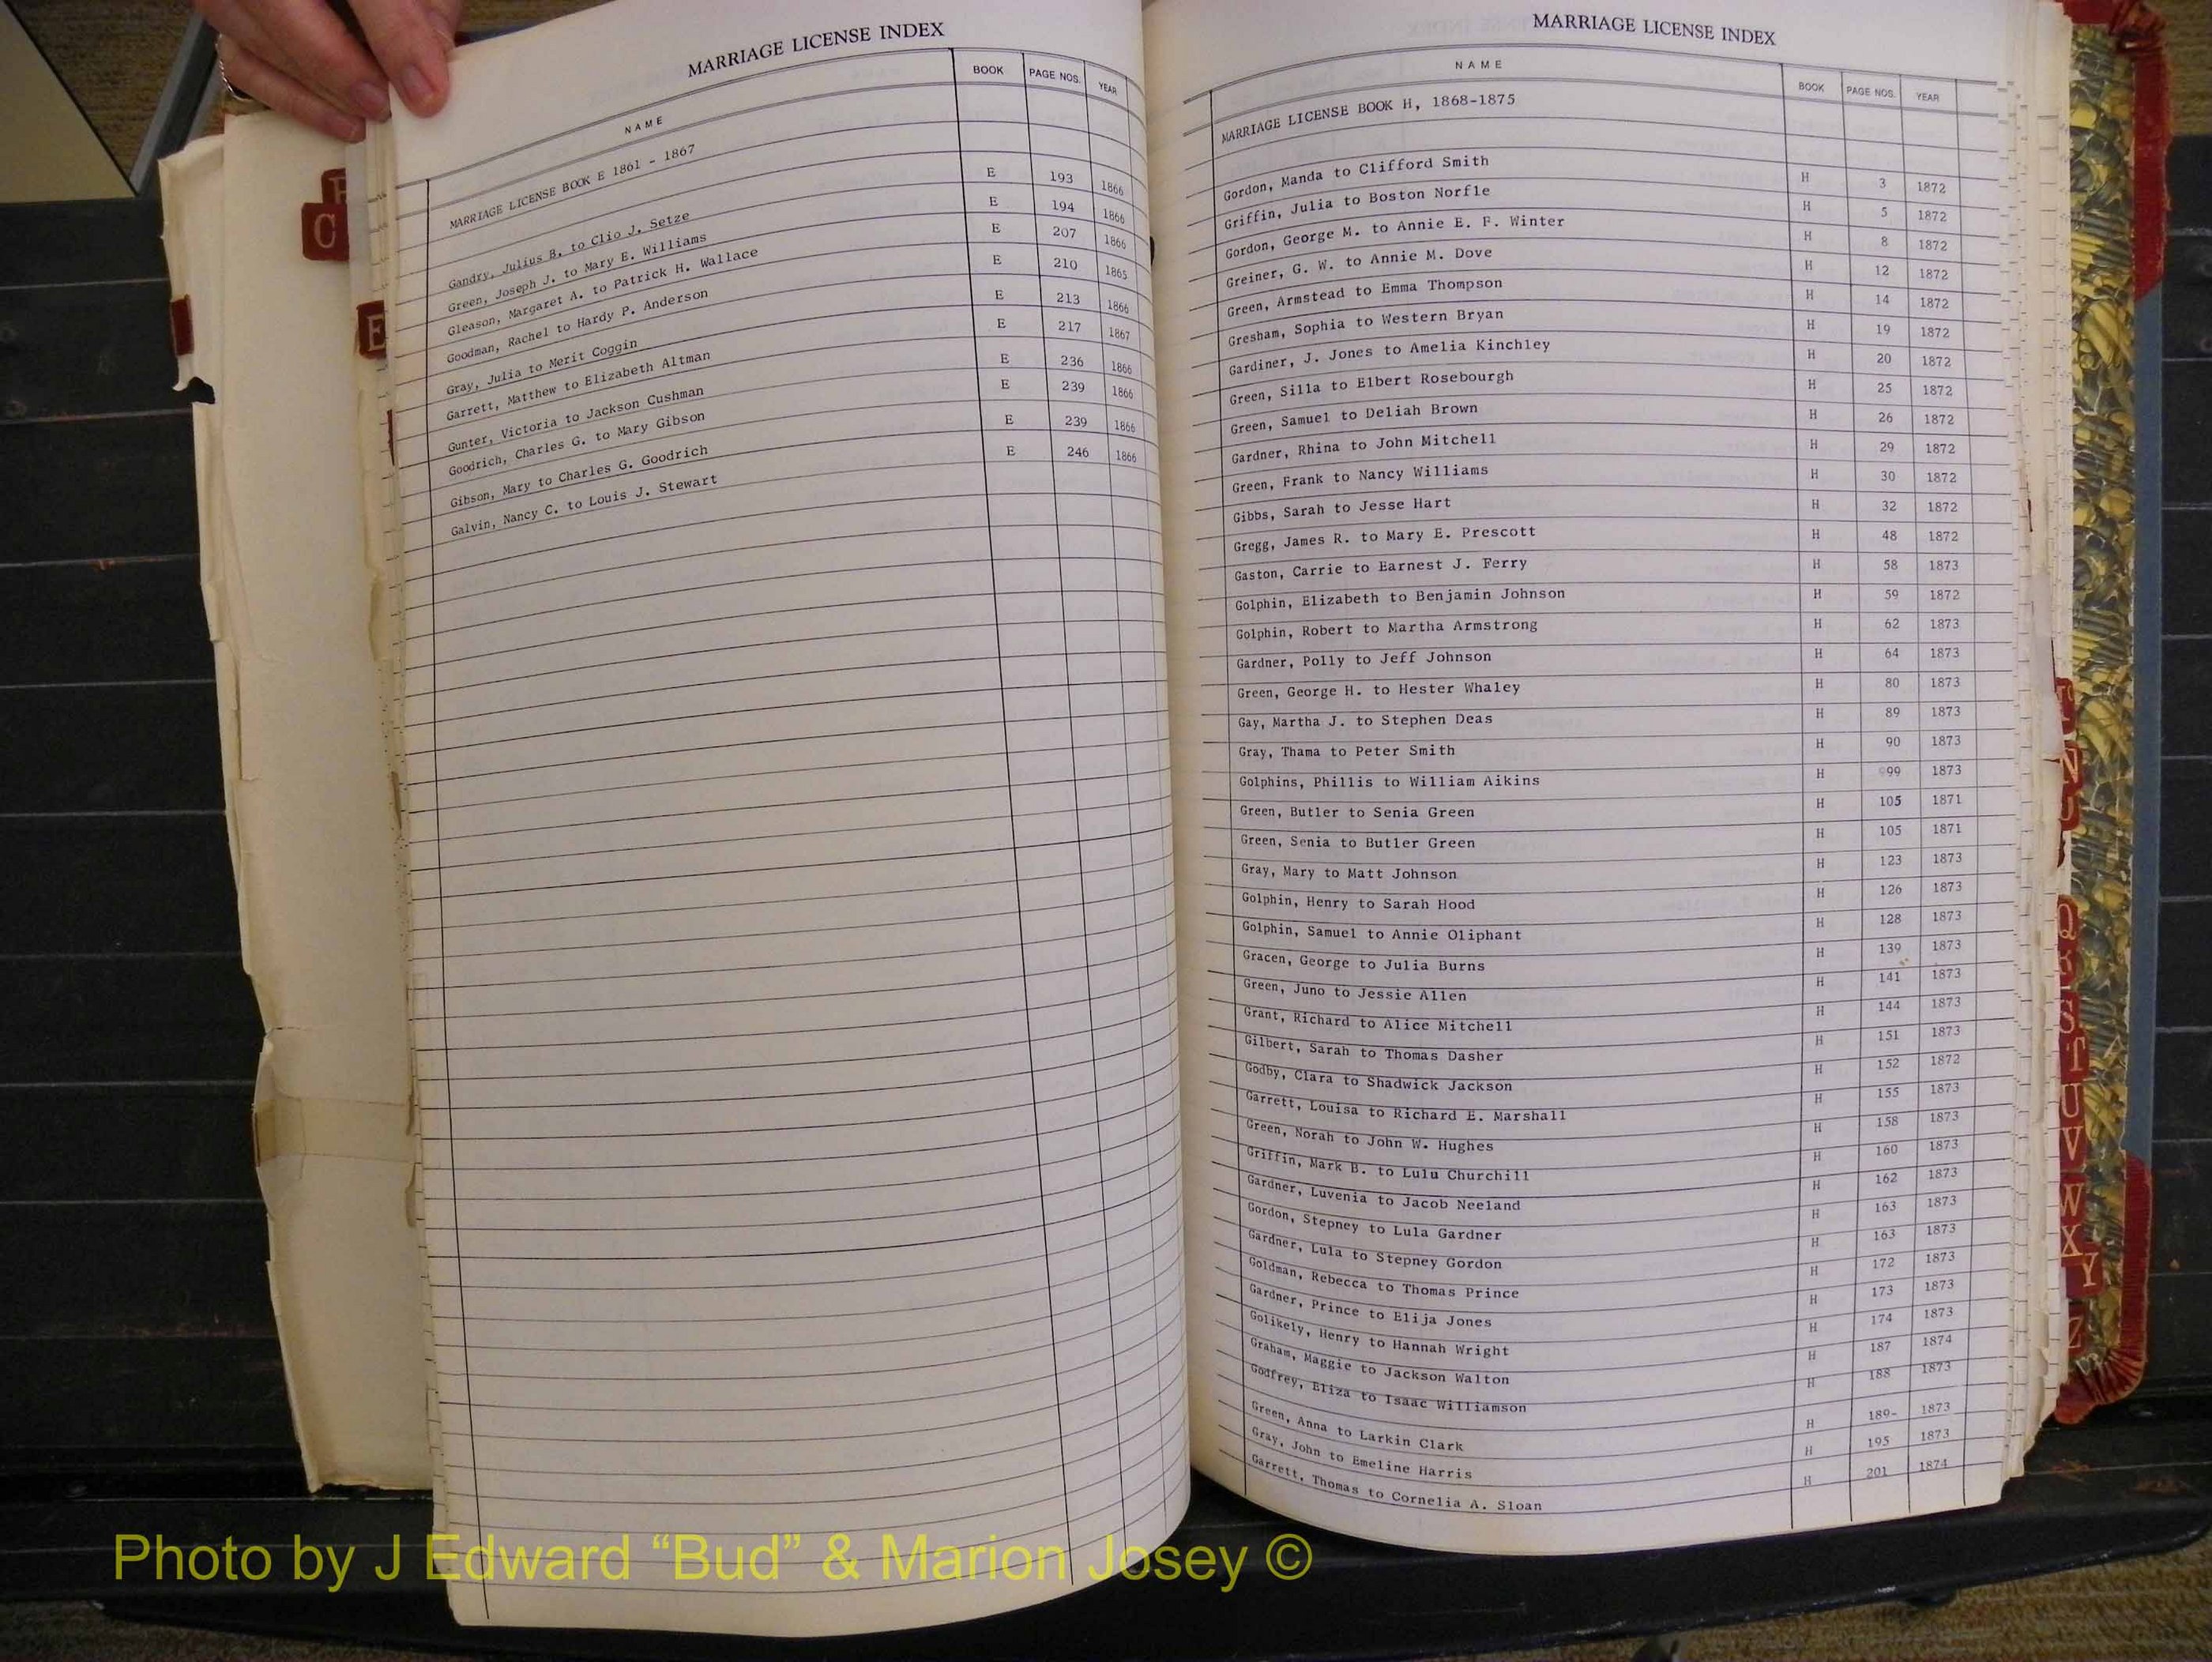 MARRIAGE LICENSE INDEX
NAME BOOK PAGE NOS. YEAR
MARRIAGE LICENSE BOOK E 1861 - 1867
Gandry, Julius B. to Clio J. Setze E 193 1866
Green, Joseph J. to Mary E. Williams E 194 1866
Gleason, Margaret A. to Patrick H. Wallace E 207 1866
Goodman, Rachel to Hardy P. Anderson E 210 1865
Gray, Julia to Merit Coggin E 213 1866
Garrett, Matthew to Elizabeth Altman E 217 1867
Gunter, Victoria to Jackson Cushman E 236 1866
Goodrich, Charles G. to Mary Gibson E 239 1866
Gibson, Mary to Charles G. Goodrich E 239 1866
Galvin, Nancy C. to Louis J. Stewart E 246 1866
MARRIAGE LICENSE INDEX
NAME BOOK PAGE NOS. YEAR
MARRIAGE LICENSE BOOK H, 1868-1875
Gordon, Manda to Clifford Smith H 3 1872
Griffin, Julia to Boston Norfle H 5 1872
Gordon, George M. to Annie E. F. Winter H 8 1872
Greiner, G. W. to Annie M. Dove H 12 1872
Green, Armstead to Emma Thompson H 14 1872
Gresham, Sophia to Western Bryan H 19 1872
Gardiner, J. Jones to Amelia Kinchley H 20 1872
Green, Silla to Elbert Rosebourgh H 25 1872
Green, Samuel to Deliah Brown H 26 1872
Gardner, Rhina to John Mitchell H 29 1872
Green, Frank to Nancy Williams H 30 1872
Gibbs, Sarah to Jesse Hart H 32 1872
Gregg, James R. to Mary E. Prescott H 48 1872
Gaston, Carrie to Earnest J. Ferry H 58 1873
Golphin, Elizabeth to Benjamin Johnson H 59 1872
Golphin, Robert to Martha Armstrong H 62 1873
Gardner, Polly to Jeff Johnson H 64 1873
Green, George H. to Hester Whaley H 80 1873
Gay, Martha J. to Stephen Deas H 89 1873
Gray, Thama to Peter Smith H 90 1873
Golphins, Phillis to William Aikins H 99 1873
Green, Butler to Senia Green H 105 1871
Green, Senia to Butler Green H 105 1871
Gray, Mary to Matt Johnson H 123 1873
Golphin, Henry to Sarah Hood H 126 1873
Golphin, Samuel to Annie Oliphant H 128 1873
Gracen, George to Julia Burns H 139 1873
Green, Juno to Jessie Allen H 141 1873
Grant, Richard to Alice Mitchell H 144 1873
Gilbert, Sarah to Thomas Dasher H 151 1873
Godby, Clara to Shadwick Jackson H 152 1872
Garrett, Louisa to Richard E. Marshall H 155 1873
Green, Norah to John W. Hughes H 158 1873
Griffin, Mark B. to Lulu Churchill H 160 1873
Gardner, Luvenia to Jacob Neeland H 162 1873
Gordon, Stepney to Lula Gardner H 163 1873
Gardner, Lula to Stepney Gordon H 163 1873
Goldman, Rebecca to Thomas Prince H 172 1873
Gardner, Prince to Elija Jones H 173 1873
Golikely, Henry to Hannah Wright H 174 1873
Graham, Maggie to Jackson Walton H 187 1874
Godfrey, Eliza to Isaac Williamson H 188 1873
Green, Anna to Larkin Clark H 189- 1873
Gray, John to Emeline Harris H 195 1873
Garrett, Thomas to Cornelia A. Sloan H 201 1874
C
E
Q
R
S
T
U
V
W
X
Y
Z
Photo by J Edward “Bud” & Marion Josey ©